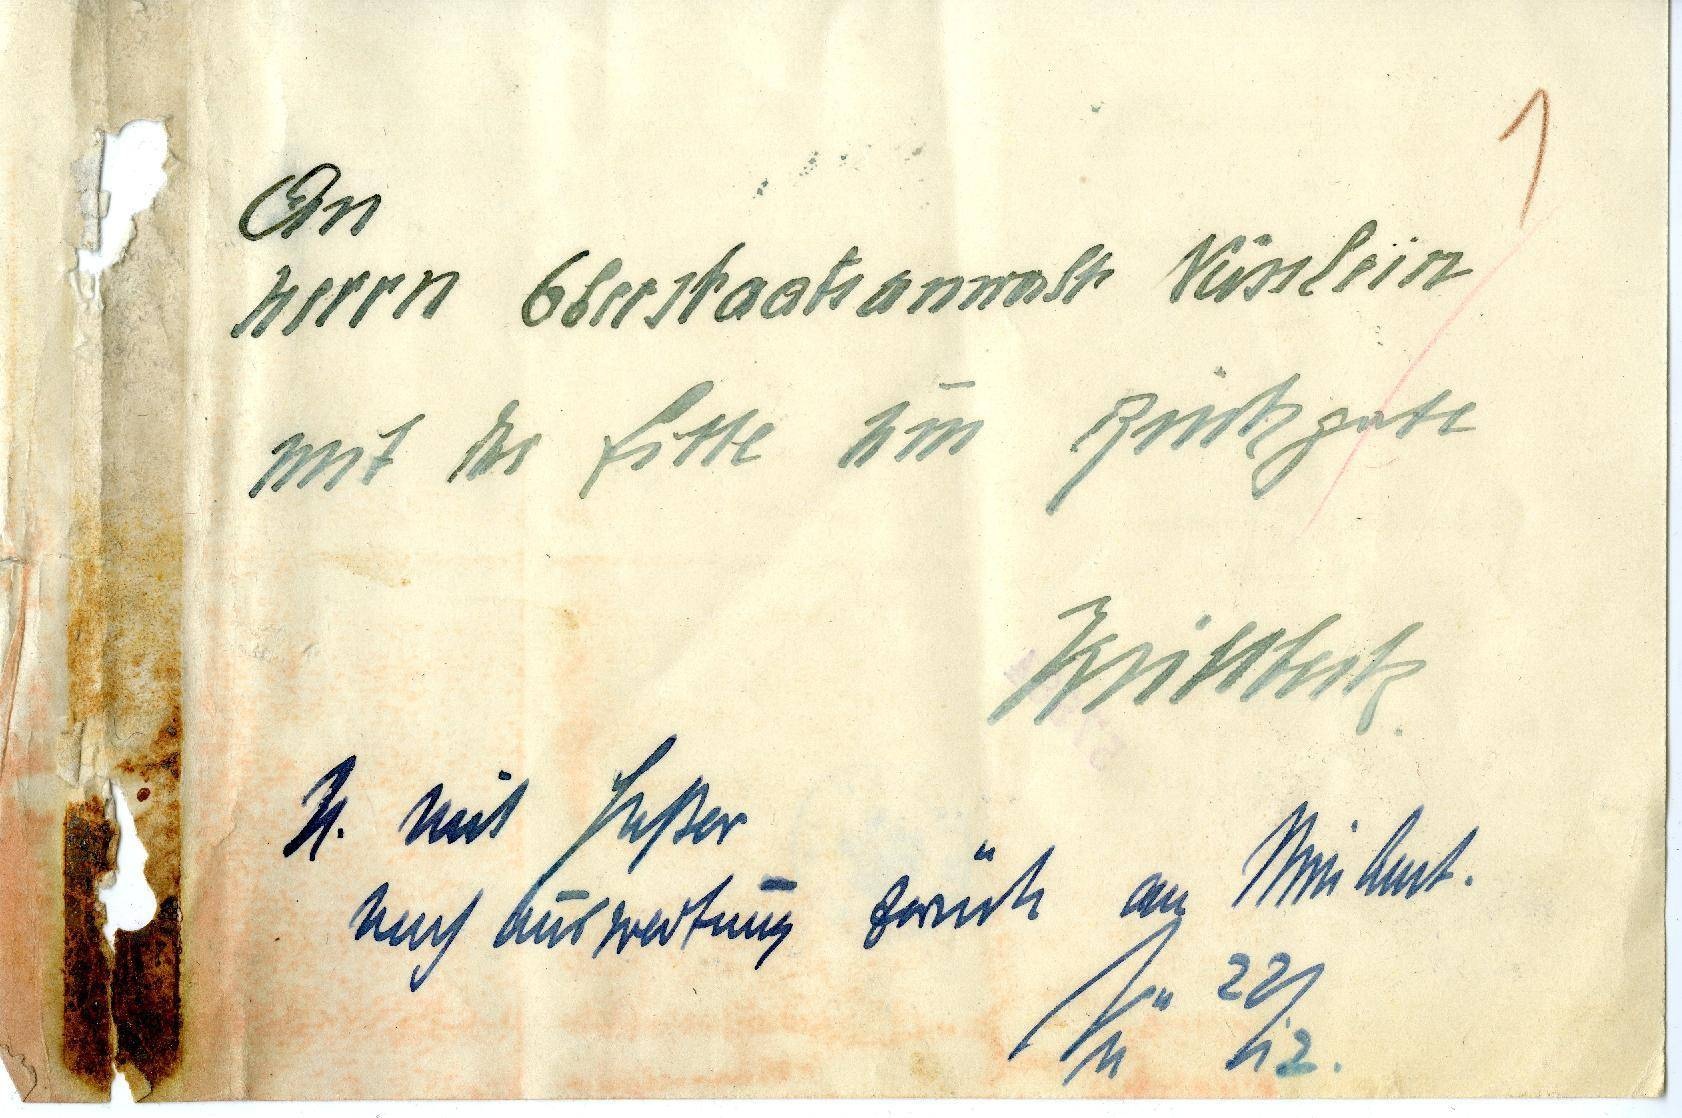 1
An
Herrn Oberstaatsanwalt Nüsslein
mit der Bitte um Rückgabe
U. mit
nach Auswertung zurück an
22/12.